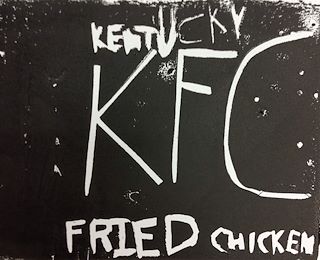 KENTUCKY
KFC
FRIED CHICKEN